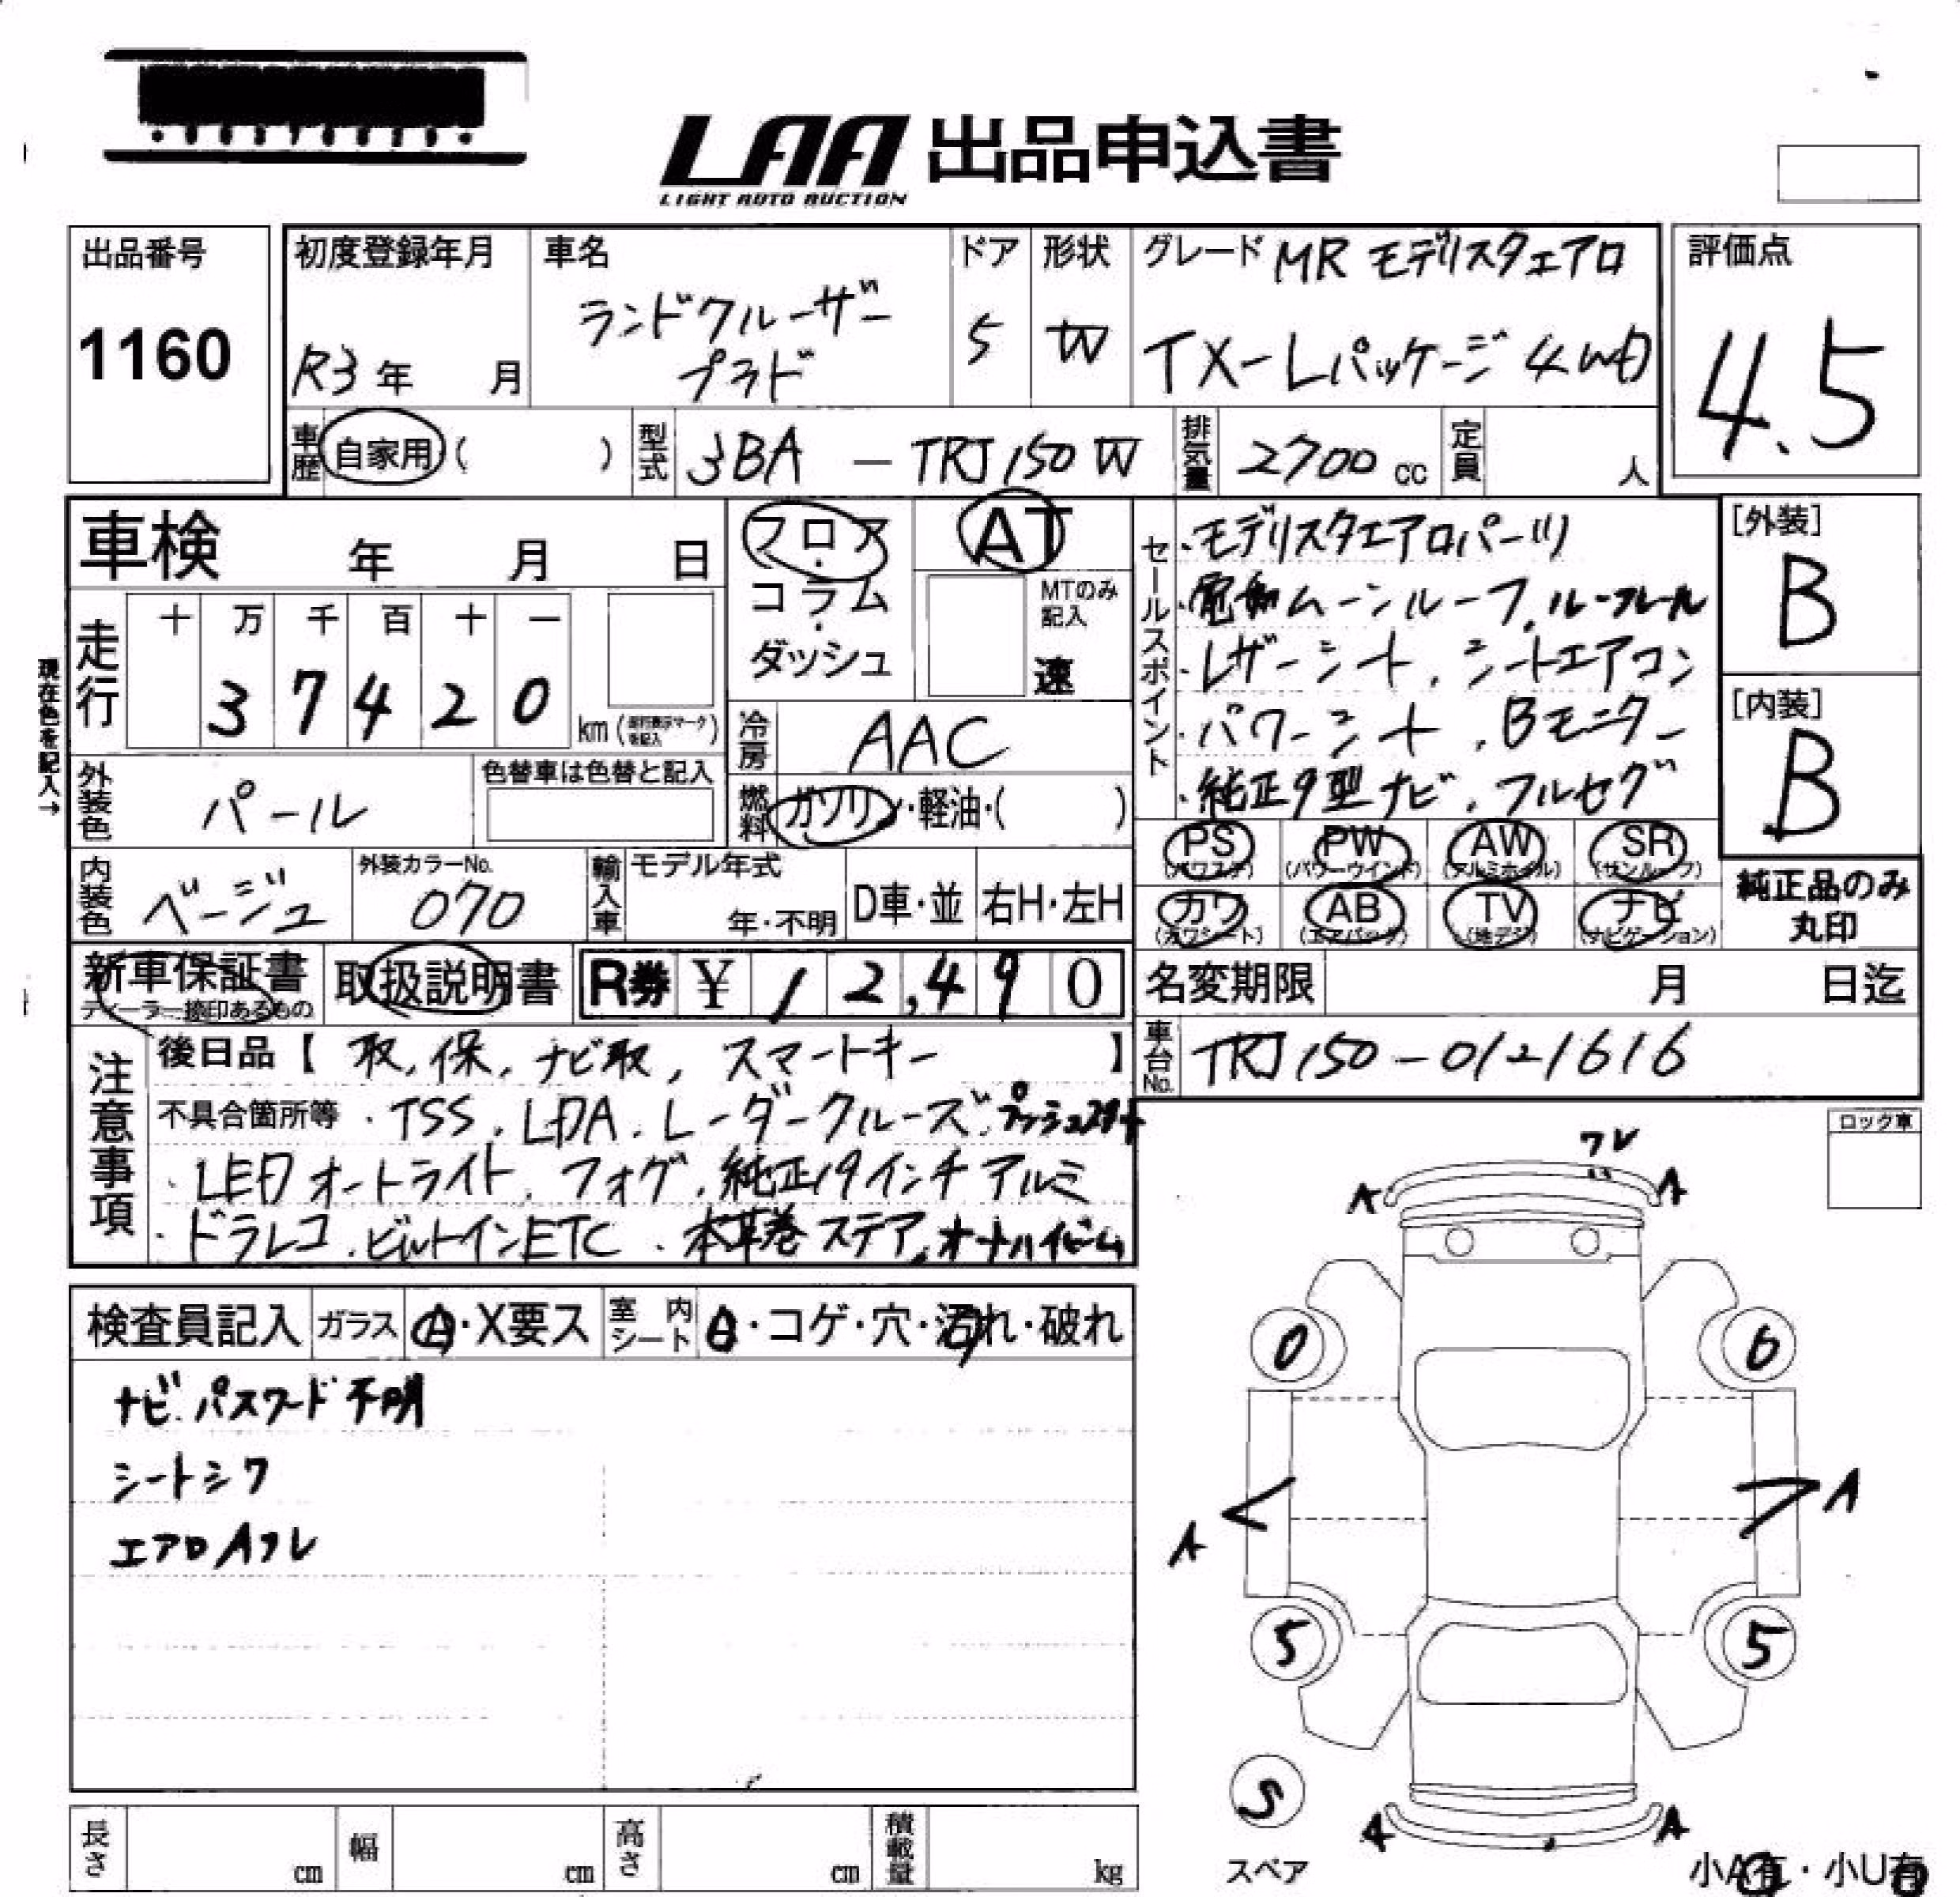 LAA 出品申込書
LIGHT AUTO AUCTION
出品番号
1160
初度登録年月
R3年 月
車名
ランドクルーザー
プラド
ドア
5
形状
W
グレード MR モデリスタエアロ
TX-Lパッケージ 4WD
評価点
4.5
車歴 自家用 ( )
型式 3BA - TRJ150W
排気量 2700 cc
定員 人
車検 年 月 日
フロア・
コラム・
ダッシュ
AT
MTのみ
記入
速
走行
十 万 千 百 十 一
3 7 4 2 0
km (走行表示マークを記入)
現在色を記入→
冷房 AAC
外装色 パール
色替車は色替と記入
燃料 ガソリン・軽油・( )
内装色 ベージュ
外装カラーNo.
070
輸入車
モデル年式
年・不明
D車・並
右H・左H
セールスポイント
・モデリスタエアロパーツ
・電動ムーンルーフ、ルーフレール
・レザーシート、シートエアコン
・パワーシート、Bモニター
・純正9型ナビ、フルセグ
[外装]
B
[内装]
B
PS PW AW SR
(パワステ) (パワーウインド) (アルミホイル) (サンルーフ)
カワ AB TV ナビ
(カワシート) (エアバック) (地デジ) (ナビゲーション)
純正品のみ
丸印
新車保証書
ディーラー捺印あるもの
取扱説明書
R券 ¥ 12,490
名変期限 月 日迄
車台No. TRJ150-0121616
注意事項
後日品【 取、保、ナビ取、スマートキー 】
不具合箇所等 ・TSS、LDA、レーダークルーズ、プッシュスタート
・LEDオートライト、フォグ、純正19インチアルミ
・ドラレコ、ビルトインETC、本革巻ステア、オートハイビーム
ロック車
検査員記入
ガラス A・X要ス
室内シート ・コゲ・穴・汚れ・破れ
ナビパスワード不明
シートシワ
エアロAワレ
ワレ
A A
6
A A
5 5
S
スペア
A A
小A有・小U有
長さ cm
幅 cm
高さ cm
積載量 kg